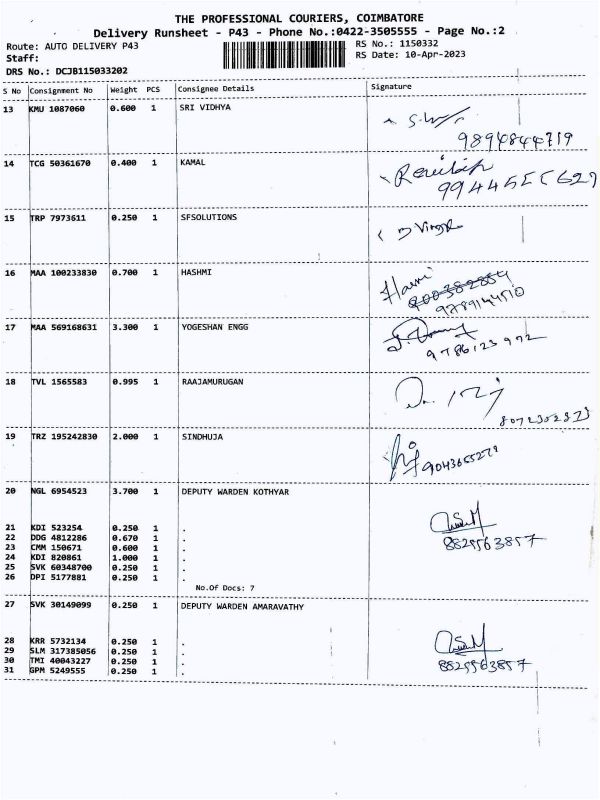 THE PROFESSIONAL COURIERS, COIMBATORE
Delivery Runsheet - P43 - Phone No.:0422-3505555 - Page No.:2
Route: AUTO DELIVERY P43 RS No.: 1150332
Staff: RS Date: 10-Apr-2023
DRS No.: DCJB115033202
S No Consignment No Weight PCS Consignee Details Signature
13 KMU 1087060 0.600 1 SRI VIDHYA
9894844719
14 TCG 50361670 0.400 1 KAMAL
15 TRP 7973611 0.250 1 SFSOLUTIONS
16 MAA 100233830 0.700 1 HASHMI
9789144510
17 MAA 569168631 3.300 1 YOGESHAN ENGG
9786123972
18 TVL 1565583 0.995 1 RAAJAMURUGAN
8072302873
19 TRZ 195242830 2.000 1 SINDHUJA
9043655279
20 NGL 6954523 3.700 1 DEPUTY WARDEN KOTHYAR
21 KDI 523254 0.250 1 .
22 DDG 4812286 0.670 1 .
23 CMM 150671 0.600 1 .
24 KDI 820861 1.000 1 .
25 SVK 60348700 0.250 1 .
26 DPI 5177881 0.250 1 .
8825563857
No.Of Docs: 7
27 SVK 30149099 0.250 1 DEPUTY WARDEN AMARAVATHY
28 KRR 5732134 0.250 1 .
29 SLM 317385056 0.250 1 .
30 TMI 40043227 0.250 1 .
31 GPM 5249555 0.250 1 .
8825563857